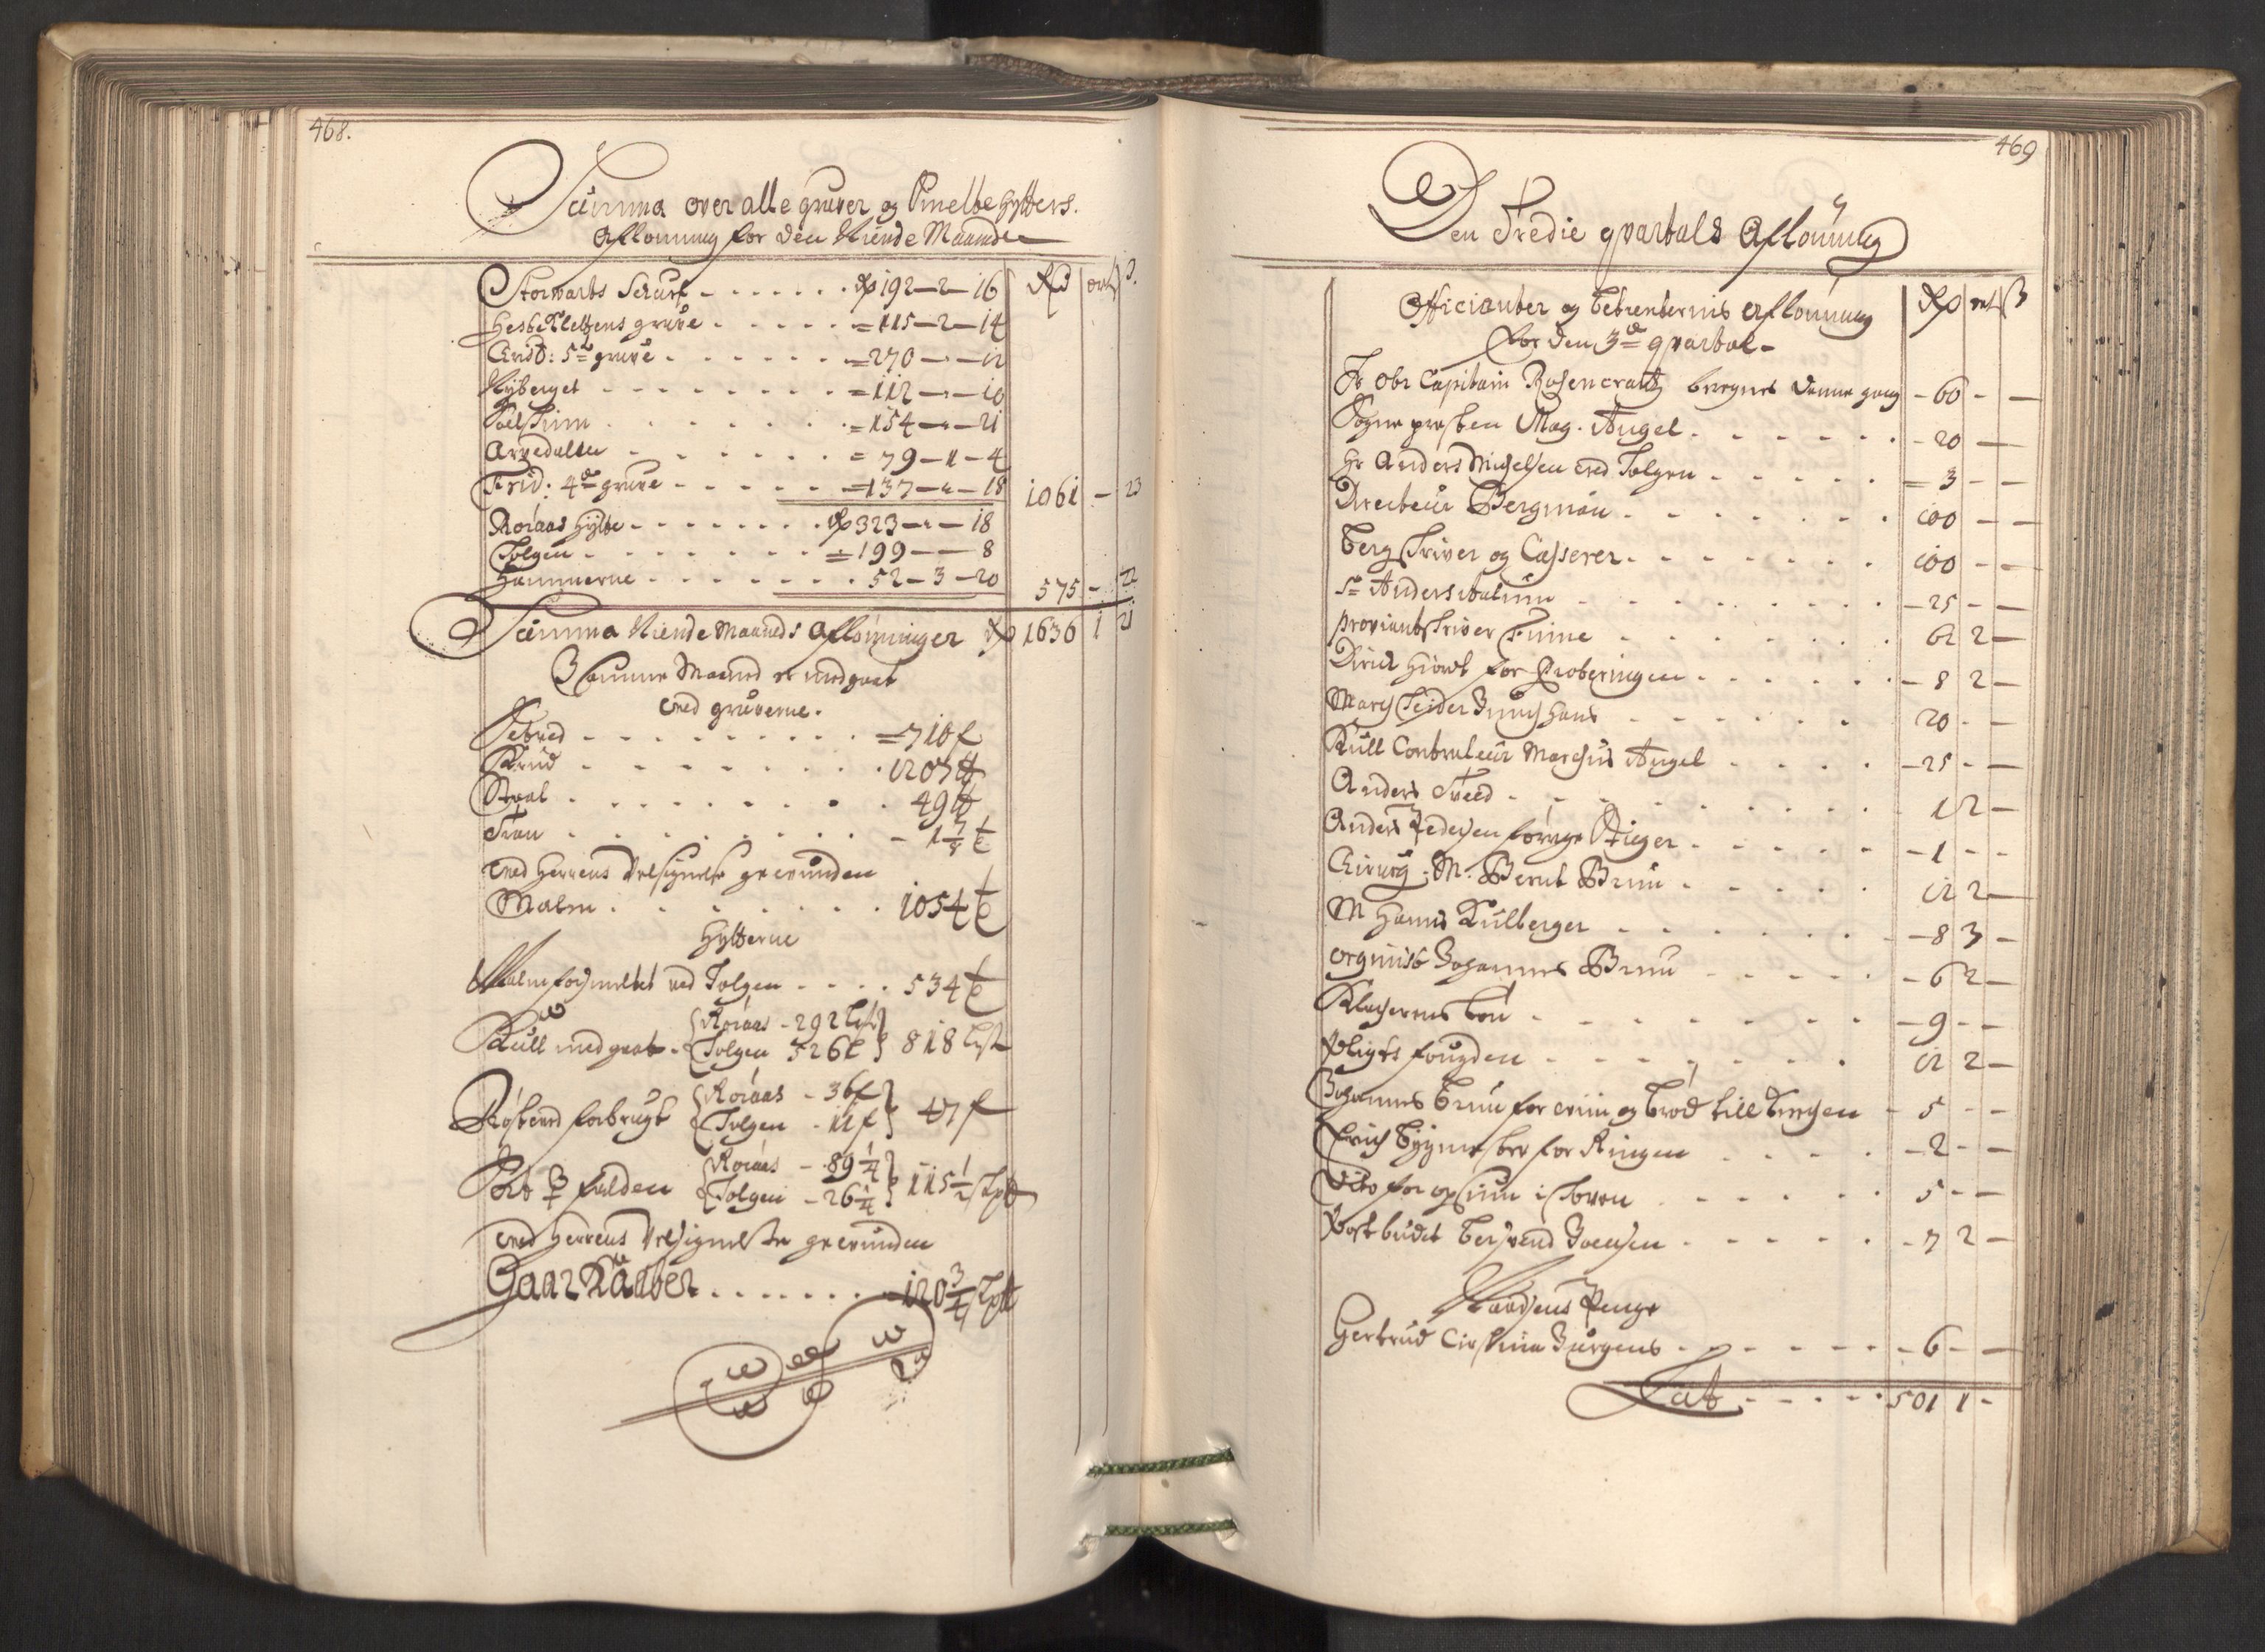 468.
Summa over alle gruver og Smelte hytters.
Aflonning for den Niende Maaned
Rd ort s.
Storvarts Schurf - - - - - - Rd 192-2-16
Hestkletzens gruve - - - - - = 115-2-14
Christ: 5te gruve - - - - - - = 270-"-12
Nyberget - - - - - - - - = 112-"-10
Solskinn - - - - - - - - = 154-"-21
Arvedallen - - - - - - - = 79-1-4
Frid: 4de gruve - - - - - = 137-"-18 1061 - 23
Röraas hytte - - - - - - - Rd 323-"-18
Tolgen - - - - - - - - = 199 - - 8
Hammerne - - - - - - - 52-3-20 575 - 22
Summa Niende Maaneds Aflönninger Rd 1636 1 21
I samme Maaned er medgaaet
ved gruverne.
Setved - - - - - - - - = 710 f
Krud - - - - - - - - 1207 ℔
Staal - - - - - - - - 49 ℔
Tran - - - - - - - - 1 7/8 t
med Herrens Velsignelse gevunden
Malm - - - - - - - - 1054 t
Hytterne
Malm forsmeltet ved Tolgen - - - - 534 t
Kull medgaaet - { Röraas - 292 lest
Tolgen 526 l } 818 lest
Röstved forbrugt { Röraas - 36 f
Tolgen - 11 f } 47 f
Sort ♀ falden { Röraas - 89 1/4
Tolgen - 26 1/4 } 115 1/2 skp℔
med Herrens Velsignelse gevunden
Gaar Kaaber - - - - - - - 120 3/4 skp℔
469
Den Tredie qvartals Aflönning
Officianter og betienternis Aflönning Rd ort s
for den 3de qvartal -
Hr Obr Capitain Rosencrantz beregnes denne gang - 60 - -
Sogne presten Mag. Angel - - - - - - 20 -
Hr Anders Michelsen ved Tolgen - - - - - = 3 - -
Directeur Bergman - - - - - - - 100 - -
Bergskriver og Casserer - - - - - - 100 - -
Sr Anders - - - - - - - - 25 - -
proviantskriver Finne - - - - - - - 62 2 -
Dirich Hiort for Proberingen - - - - - - 8 2 -
Marchscheider - - - - - - 20 - -
Kull Contraleur Marchus Angel - - - - - 25 - -
Anders Sveed - - - - - - - - 1 2 -
Anders Pedersen forrige Stiger - - - - - - 1 - -
Chirurg: M. Bernt Bruu - - - - - 12 2 -
M Hanns Kulberger - - - - - - 8 3 -
organist Johannes Bruu - - - - - 6 2 -
Klocherens lön - - - - - - - - 9 - -
Pligts fougden - - - - - - - 12 2 -
Johannes Bruu for viin og bröd till Kirchen - 5 - -
Erich Bygmester for Ringen - - - - - 2 - -
Dito for opsiun i schoven - - - - - 5 - -
Postbudet Joensen - - - - - - 7 2 -
Naadsens Penge
Gertrud Cirstina Jürgens - - - - - - - 6 - -
Lat - - - - - 501 1 -